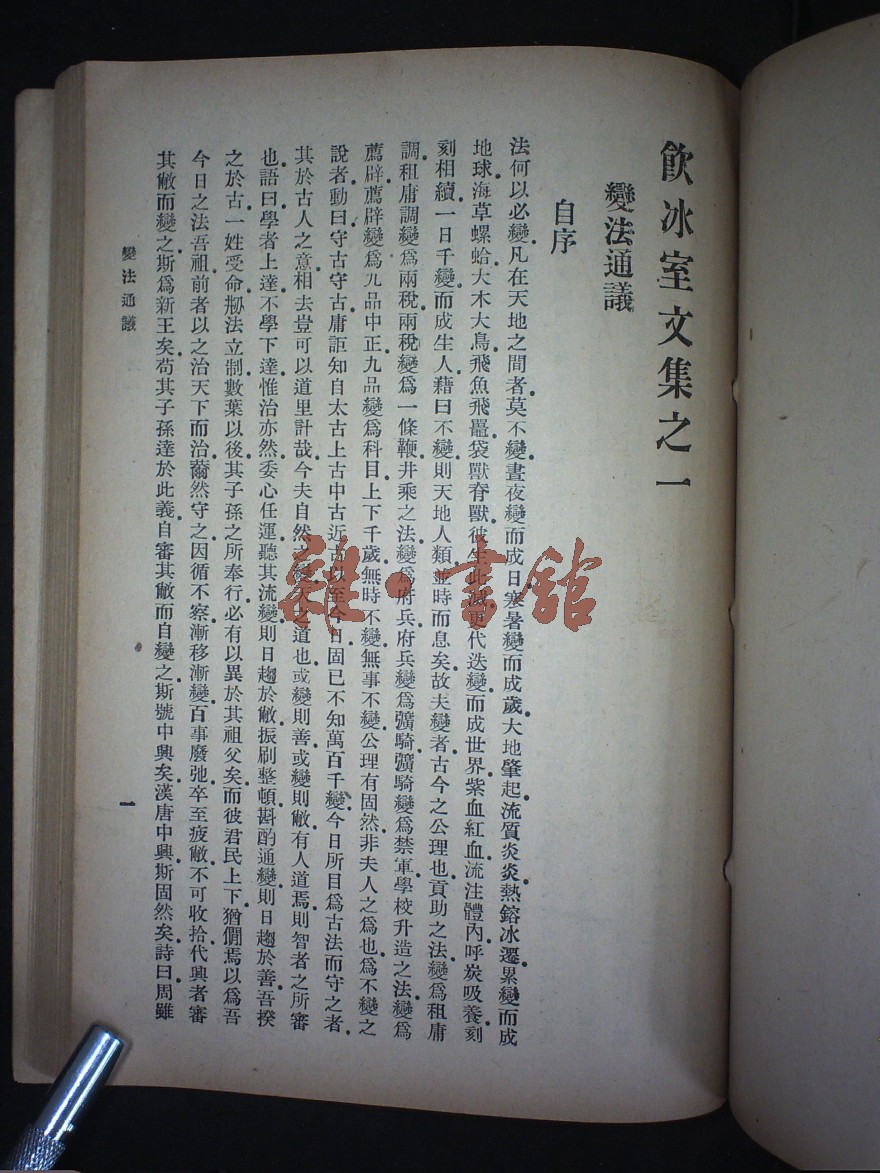 飲冰室文集之一
變法通議
自序
法何以必變凡在天地之間者莫不變晝夜變而成日寒暑變而成歲大地肇起流質炎炎熱鎔冰遷累變而成
地球海草螺蛤大木大鳥飛魚飛鼉袋獸脊獸彼生此滅更代迭變而成世界紫血紅血流注體內呼炭吸養刻
刻相續一日千變而成生人藉曰不變則天地人類並時而息矣故夫變者古今之公理也貢助之法變爲租庸
調租庸調變爲兩稅兩稅變爲一條鞭井乘之法變爲府兵府兵變爲彍騎彍騎變爲禁軍學校升造之法變爲
薦辟薦辟變爲九品中正九品變爲科目上下千歲無時不變無事不變公理有固然非夫人之爲也爲不變之
說者動曰守古守古庸詎知自太古上古中古近古以至今日固已不知萬百千變今日所目爲古法而守之者
其於古人之意相去豈可以道里計哉今夫自然之變天之道也或變則善或變則敝有人道焉則智者之所審
也語曰學者上達不學下達惟治亦然委心任運聽其流變則日趨於敝振刷整頓斟酌通變則日趨於善吾揆
之於古一姓受命刱法立制數葉以後其子孫之所奉行必有以異於其祖父矣而彼君民上下猶僩焉以爲吾
今日之法吾祖前者以之治天下而治薾然守之因循不察漸移漸變百事廢弛卒至疲敝不可收拾代興者審
其敝而變之斯爲新王矣苟其子孫達於此義自審其敝而自變之斯號中興矣漢唐中興斯固然矣詩曰周雖
變法通議
一
雜·書館